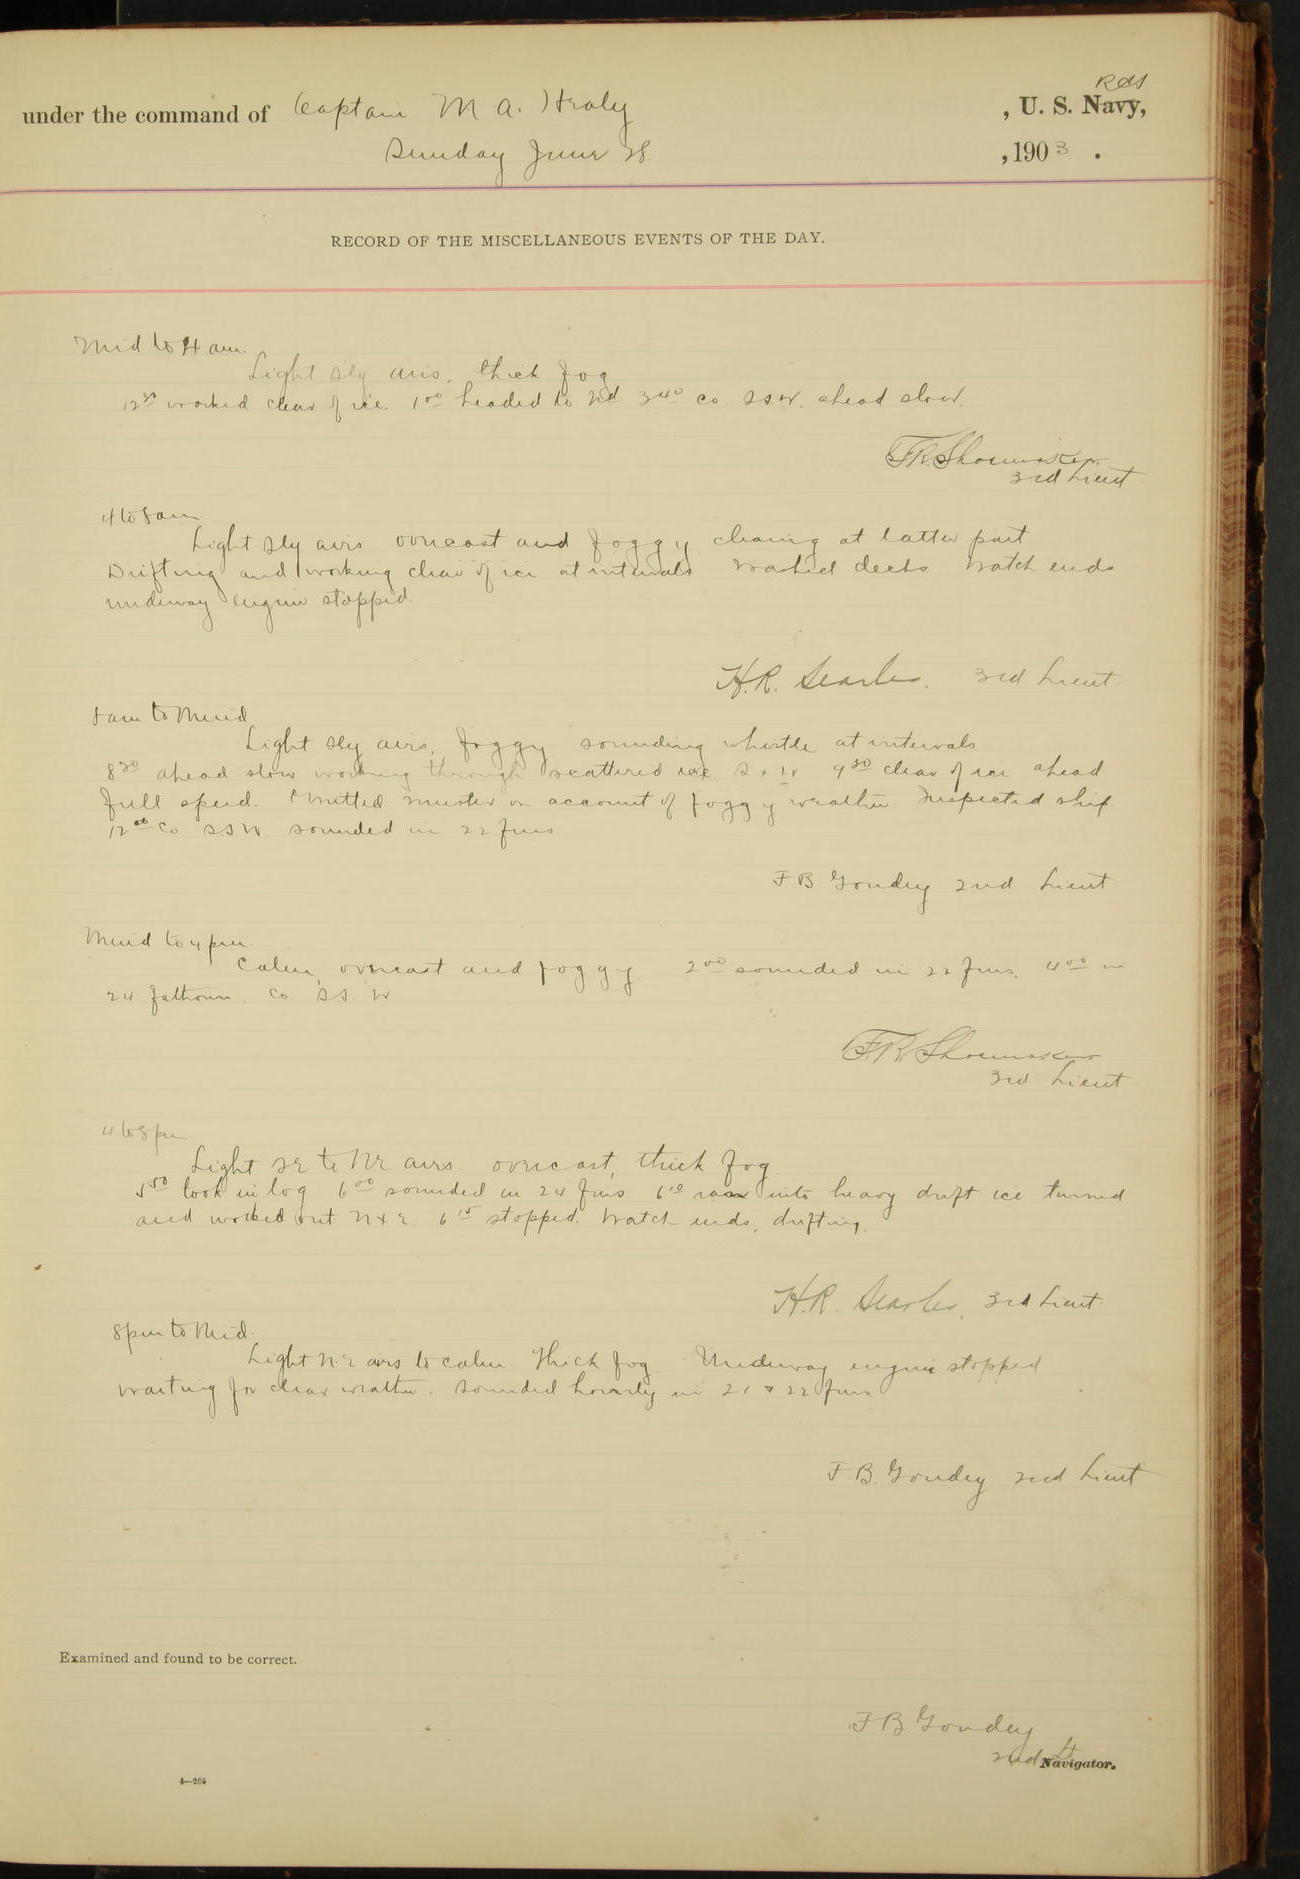 under the command of Captain M A. Healy , U. S. Navy, RCS
Sunday June 28 , 1903 .
RECORD OF THE MISCELLANEOUS EVENTS OF THE DAY.
Mid to 4 am.
Light Sly airs, thick fog
12 30 worked clear of ice. 1 00 headed to 3 40 co SSW. ahead slow.
F.R. Shoemaker
3rd Lieut
4 to 8 am
Light Sly airs overcast and foggy clearing at latter part
Drifting and working clear of ice at intervals Washed decks Watch ends
underway engine stopped.
H.R. Searles. 3rd Lieut
8 am to Merid
Light Sly airs, foggy sounding whistle at intervals
8 30 ahead slow working through scattered ice S x W 9 30 clear of ice ahead
full speed. Omitted muster on account of foggy weather Inspected ship
12 00 Co SSW. sounded in 22 fms
F B Goudey 2nd Lieut
Merid to 4 pm
Calm, overcast and foggy. 2 00 sounded in 22 fms. 4 00 in
24 fathoms. Co SS. W
F.R. Shoemaker
3rd Lieut
4 to 8 pm
Light SE to NE airs. overcast, thick fog
5 50 took in log 6 00 sounded in 24 fms. 6 10 ran into heavy drift ice turned
and worked out N x E. 6 15 stopped. Watch ends, drifting.
H.R. Searles, 3rd Lieut.
8 pm to Mid.
Light N.E airs to calm. Thick fog. Underway engine stopped
waiting for clear weather. Sounded hourly in 21 & 22 fms
F. B. Goudey 2nd Lieut
Examined and found to be correct.
F B Goudey
2nd Lt
Navigator.
4—205